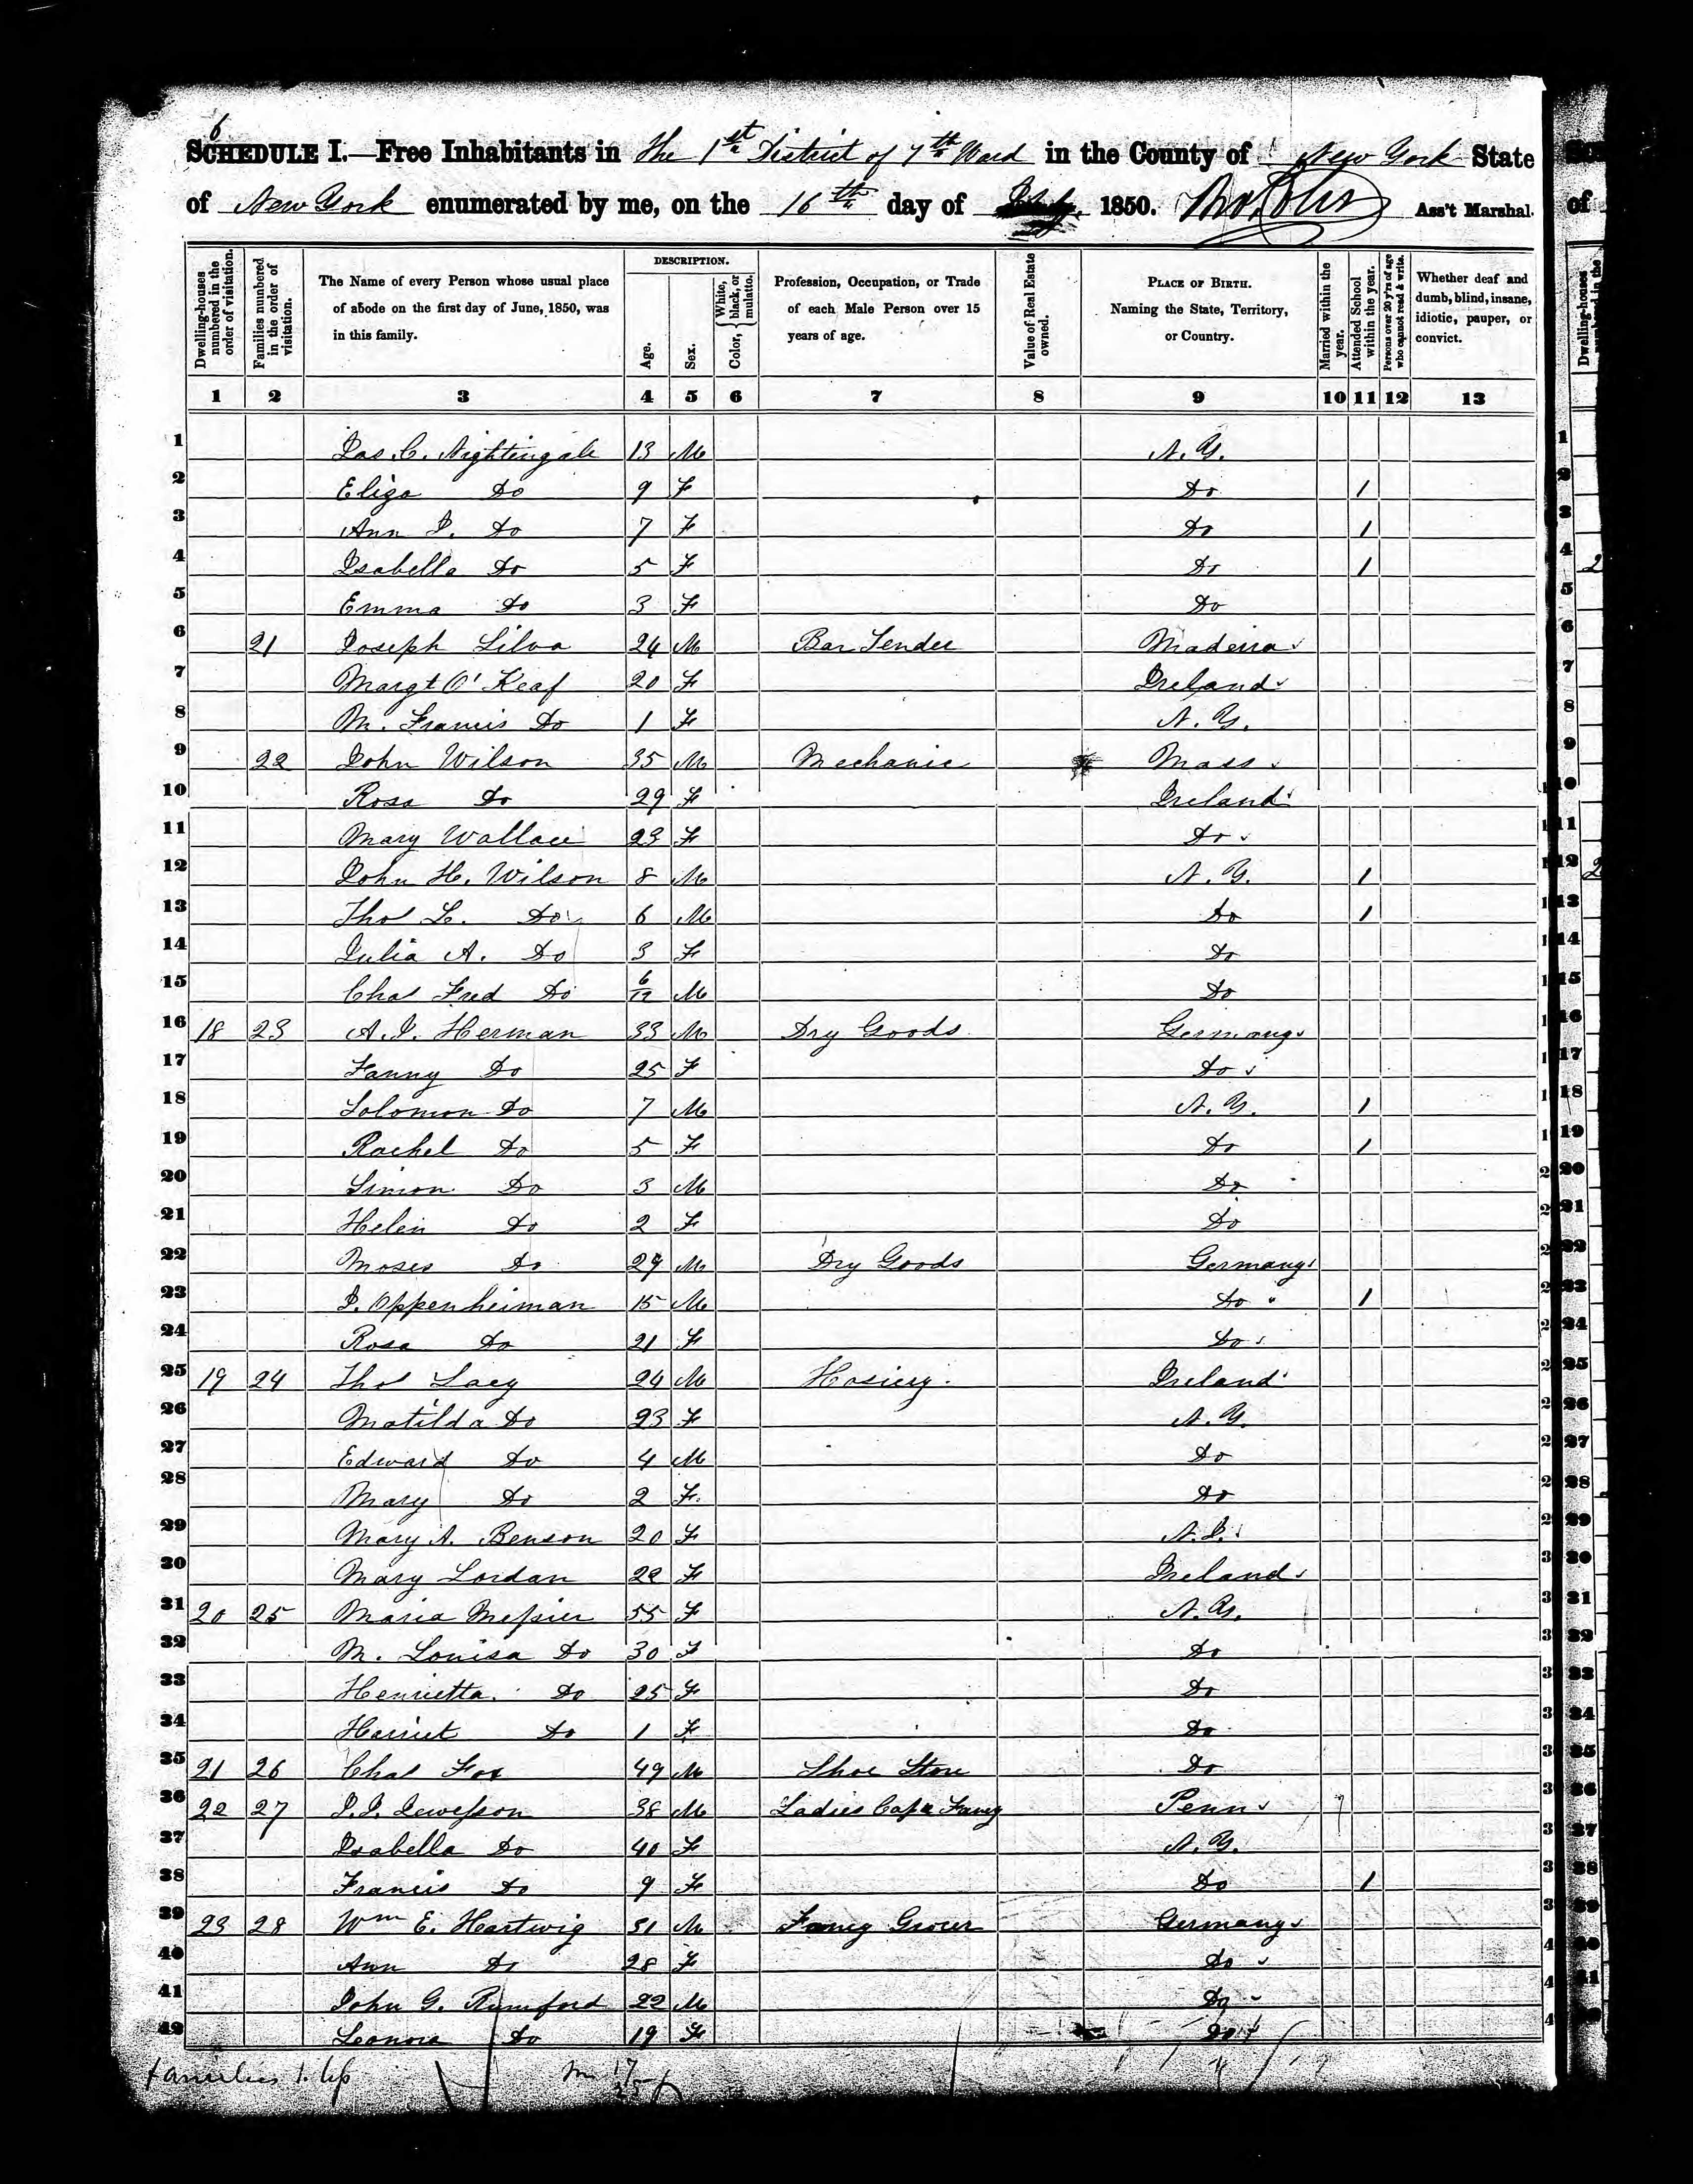 6
SCHEDULE I.—Free Inhabitants in the 1st District of 7th Ward in the County of New York State
of New York enumerated by me, on the 16th day of July 1850. Ass't Marshal.
Dwelling-houses numbered in the order of visitation.
Families numbered in the order of visitation.
The Name of every Person whose usual place of abode on the first day of June, 1850, was in this family.
DESCRIPTION.
Age.
Sex.
Color, { White, black, or mulatto.
Profession, Occupation, or Trade of each Male Person over 15 years of age.
Value of Real Estate owned.
PLACE OF BIRTH. Naming the State, Territory, or Country.
Married within the year.
Attended School within the year.
Persons over 20 y'rs of age who cannot read & write.
Whether deaf and dumb, blind, insane, idiotic, pauper, or convict.
1 2 3 4 5 6 7 8 9 10 11 12 13
1 Jas. C. Nightingale 13 M N.Y.
2 Eliza Do 9 F Do 1
3 Ann J. Do 7 F Do 1
4 Isabella Do 5 F Do 1
5 Emma Do 3 F Do
6 21 Joseph Silva 24 M Bar Tender Madeira
7 Margt O'Keaf 20 F Ireland
8 M. Francis Do 1 F N.Y.
9 22 John Wilson 35 M Mechanic Mass
10 Rosa Do 29 F Ireland
11 Mary Wallace 23 F Do
12 John H. Wilson 8 M N.Y. 1
13 Thos L. Do 6 M Do 1
14 Julia A. Do 3 F Do
15 Chas Fred Do 6/12 M Do
16 18 23 A. J. Herman 33 M Dry Goods Germany
17 Fanny Do 25 F Do
18 Solomon Do 7 M N.Y. 1
19 Rachel Do 5 F Do 1
20 Simon Do 3 M Do
21 Helen Do 2 F Do
22 Moses Do 29 M Dry Goods Germany
23 J. Oppenheiman 15 M Do 1
24 Rosa Do 21 F Do
25 19 24 Thos Lacy 24 M Hosiery Ireland
26 Matilda Do 23 F N.Y.
27 Edward Do 4 M Do
28 Mary Do 2 F Do
29 Mary A. Benson 20 F N.J.
30 Mary Lordan 22 F Ireland
31 20 25 Maria Messier 55 F N.Y.
32 M. Louisa Do 30 F Do
33 Henrietta Do 25 F Do
34 Harriet Do 1 F Do
35 21 26 Chas Fox 49 M Shoe Store Do
36 22 27 J. J. Lewesson 38 M Ladies Cap & Fancy Penn
37 Isabella Do 40 F N.Y.
38 Francis Do 9 F Do 1
39 23 28 Wm E. Hartwig 31 M Fancy Grocer Germany
40 Ann Do 28 F Do
41 John G. Rumford 22 M Do
42 Leonora Do 19 F Do
families